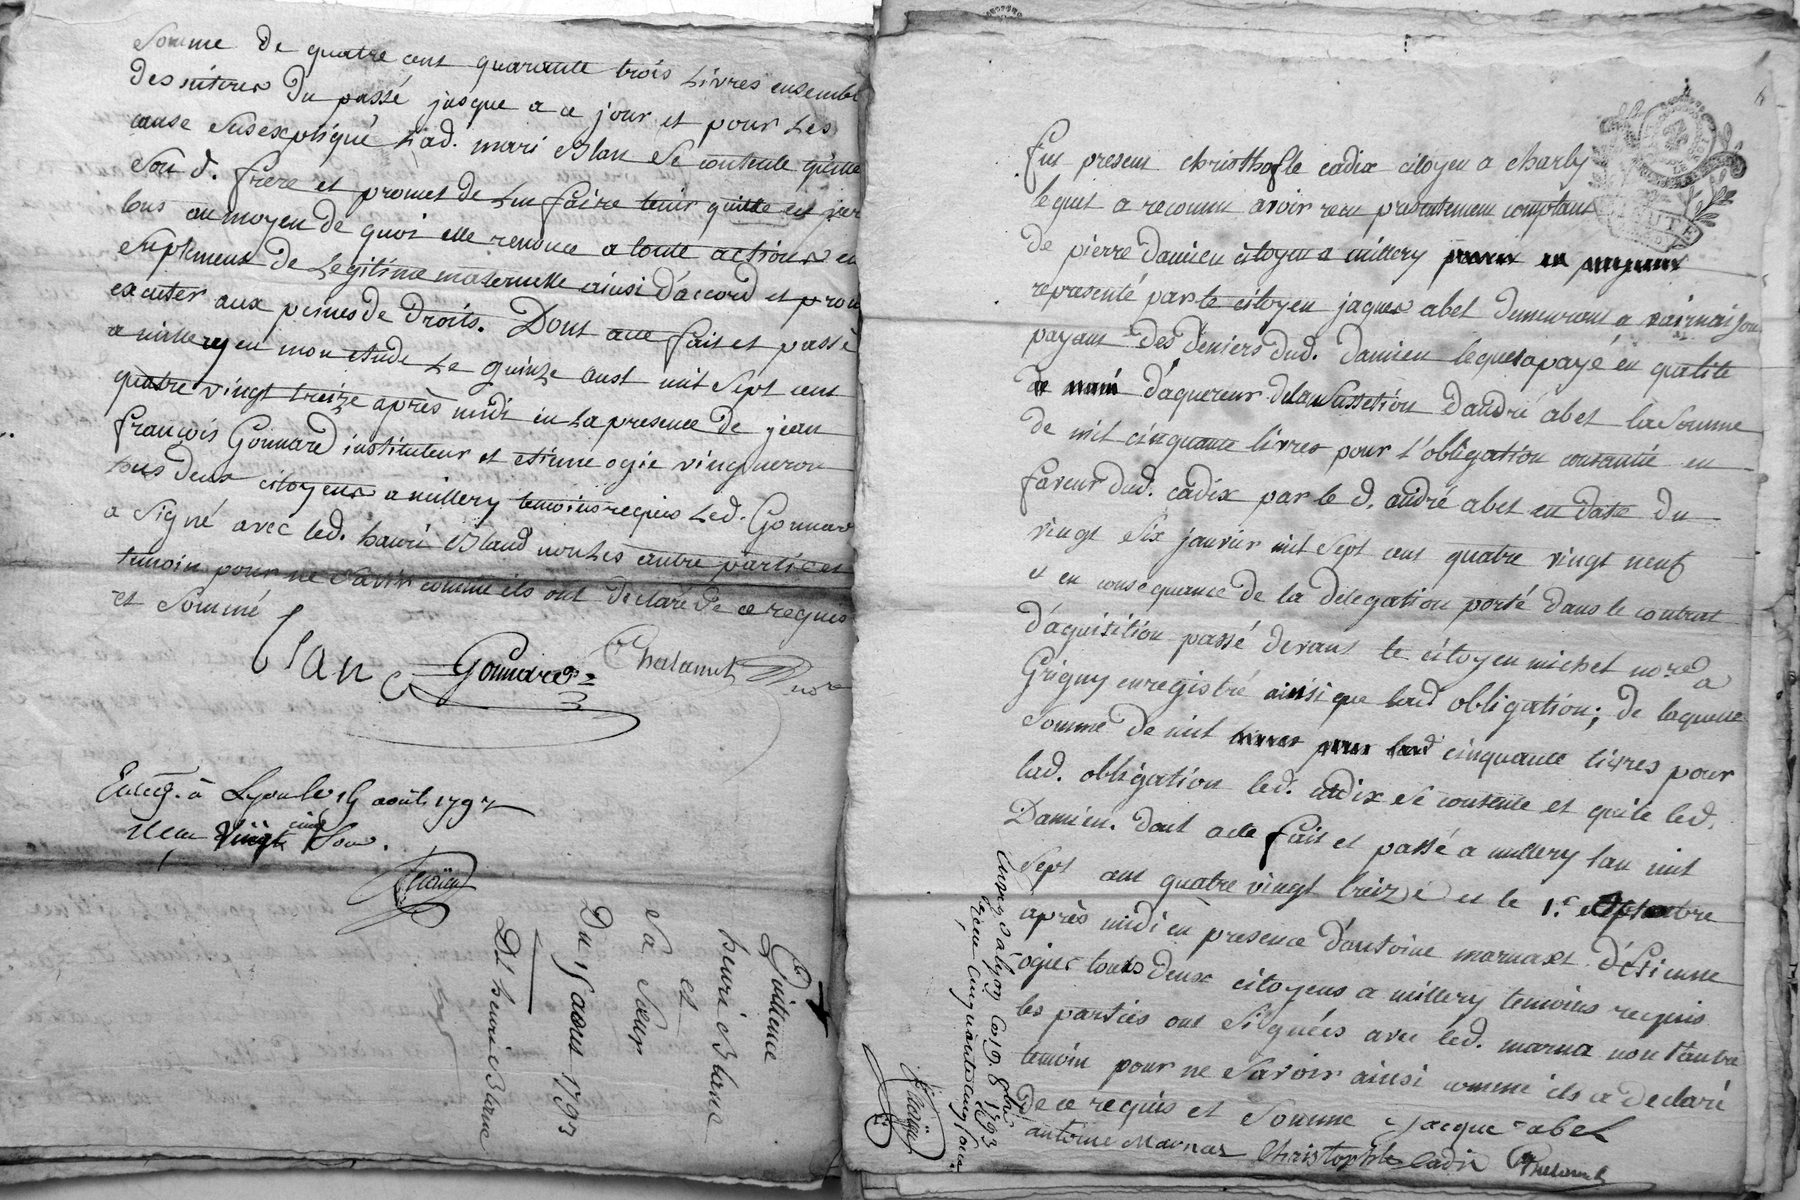 Somme de quatre cent quarante trois Livres ensembl
des interes du passé jusque a ce jour et pour Les
cause Susexpliqué Lad. mari Blan Se contente quitte
Son d. frere et promet de Lui faire tenir quitte en ver
tous au moyen de quoi elle renonce a toute actions en
Suplement de Legitime maternelle ainsi d'accord et prom
exeuter aux peines de droits. Dont acte fait et passé
a millery en mon etude Le quinze aust mil Sept cent
quatre vingt treize après midi en La presence de jean
françois Gonnard instituteur et etienne ogie vingneron
tous deux citoyens a millery temoins requis Led. Gonnar
a Signé avec led. henri Bland non Les autre partie et
temoin pour ne Savoir comme ils ont declaré de ce requis
et Sommé
blan Gonnard Chalamel Nore
Enreg. à Lyon le 19 août 1793
Reçu vingt cinq Sous.
Quittence
henri Blanc
et
Sa Sœur
Du 15 aoust 1793
Dt henri Blanc
fut present christhofle cadix citoyen a charly
lequel a reconnu avoir recu presentement comptant
de pierre damien citoyen a millery
representé par le citoyen jaques abel demeurant a vairnaison
payant des deniers dud. damien lequel a payé en qualité
d'aquereur de la Sussetion d'andré abel la Somme
de mil cinquante livres pour l'obligation consantie en
faveur dud. cadix par le d. andré abel en date du
vingt Six janvier mil Sept cent quatre vingt neuf
et en consequance de la delegation porté dans le contrat
d'aquisition passé devant le citoyen michel nore a
Grigny enregistré ainsi que lad obligation; de laquelle
Somme de mil cinquante livres pour
lad. obligation led. cadix Se contente et quite led.
Damien. dont acte fait et passé a millery l'an mil
Sept cent quatre vingt treize et le 1.r octobre
après midi en presence d'antoine marnaxt d'Etienne
ogier tous deux citoyens a millery temoins requis
les parties ont Signées avec led. marna non l'autre
temoin pour ne Savoir ainsi comme ils a declaré
de ce requis et Somme Jacque abel
antoine Marnas Christophle Cadix Chalamel
Enreg. a Lyon Ce 19. 8bre 1793
reçu Cinquante cinq Sous.